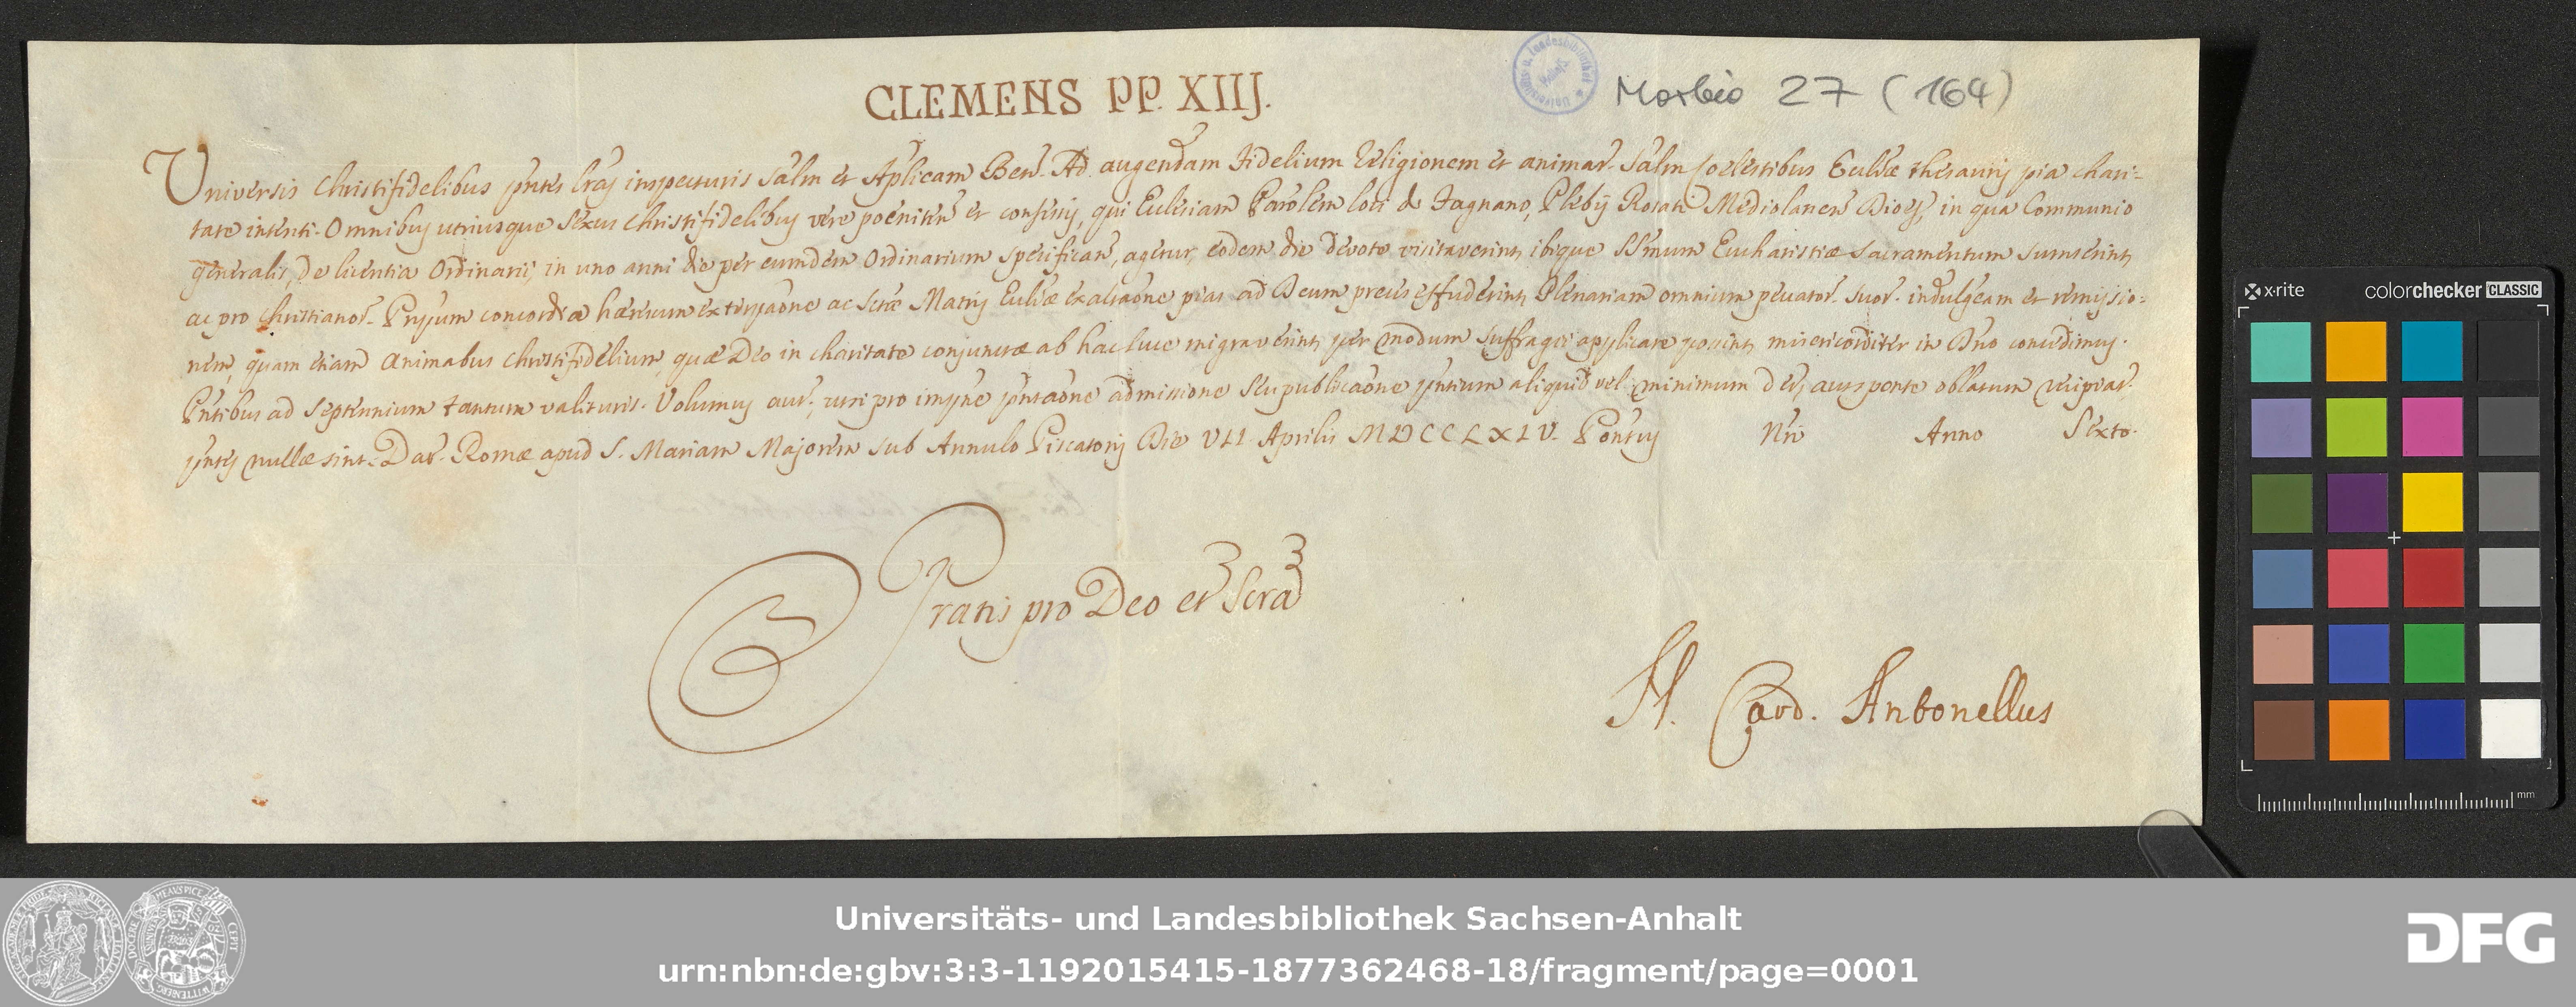 CLEMENS PP. XIIJ.
Morbio 27 (164)
Universis Christifidelibus pñtes lras inspecturis Salm et Aplicam Ben. Ad augendam Fidelium Religionem et animar. Salm Coelestibus Ecclæ thesauris pia chari-
tate intenti. Omnibus utriusque Sexus Christifidelibus vere poeniten et confessis, qui Ecclesiam Parolem loci de Fagnano, Plebis Rosati Mediolanen Dioes, in qua Communio
generalis, de licentia Ordinarii, in uno anni die per eumdem Ordinarium specifican, agetur, eodem die devote visitaverint, ibique SSmum Eucharistiæ Sacramentum sumserint,
ac pro Christianor. Prpum concordia hæresum extirpaone ac Sctæ Matris Ecclæ exaltaone pias ad Deum preces effuderint, Plenariam omnium peccator. suor. indulgeam et remissio-
nem, quam etiam Animabus Christifidelium, quæ Deo in charitate conjunctæ ab hac luce migraverint, per modum suffragii applicare possint, misericorditer in Dno concedimus.
Pntibus ad Septennium tantum valituris. Volumus aut, ut si pro impne pntaone admissione seu publicaone pntium aliquid vel minimum det, aut sponte oblatum recipiat,
pntes nullæ sint. Dat. Romæ apud S. Mariam Majorem sub Annulo Piscatoris Die VII Aprilis MDCCLXIV. Pontus Nri Anno Sexto.
Gratis pro Deo et Scra
N. Card. Antonellus
x·rite colorchecker CLASSIC
mm
Universitäts- und Landesbibliothek Sachsen-Anhalt
urn:nbn:de:gbv:3:3-1192015415-1877362468-18/fragment/page=0001
DFG